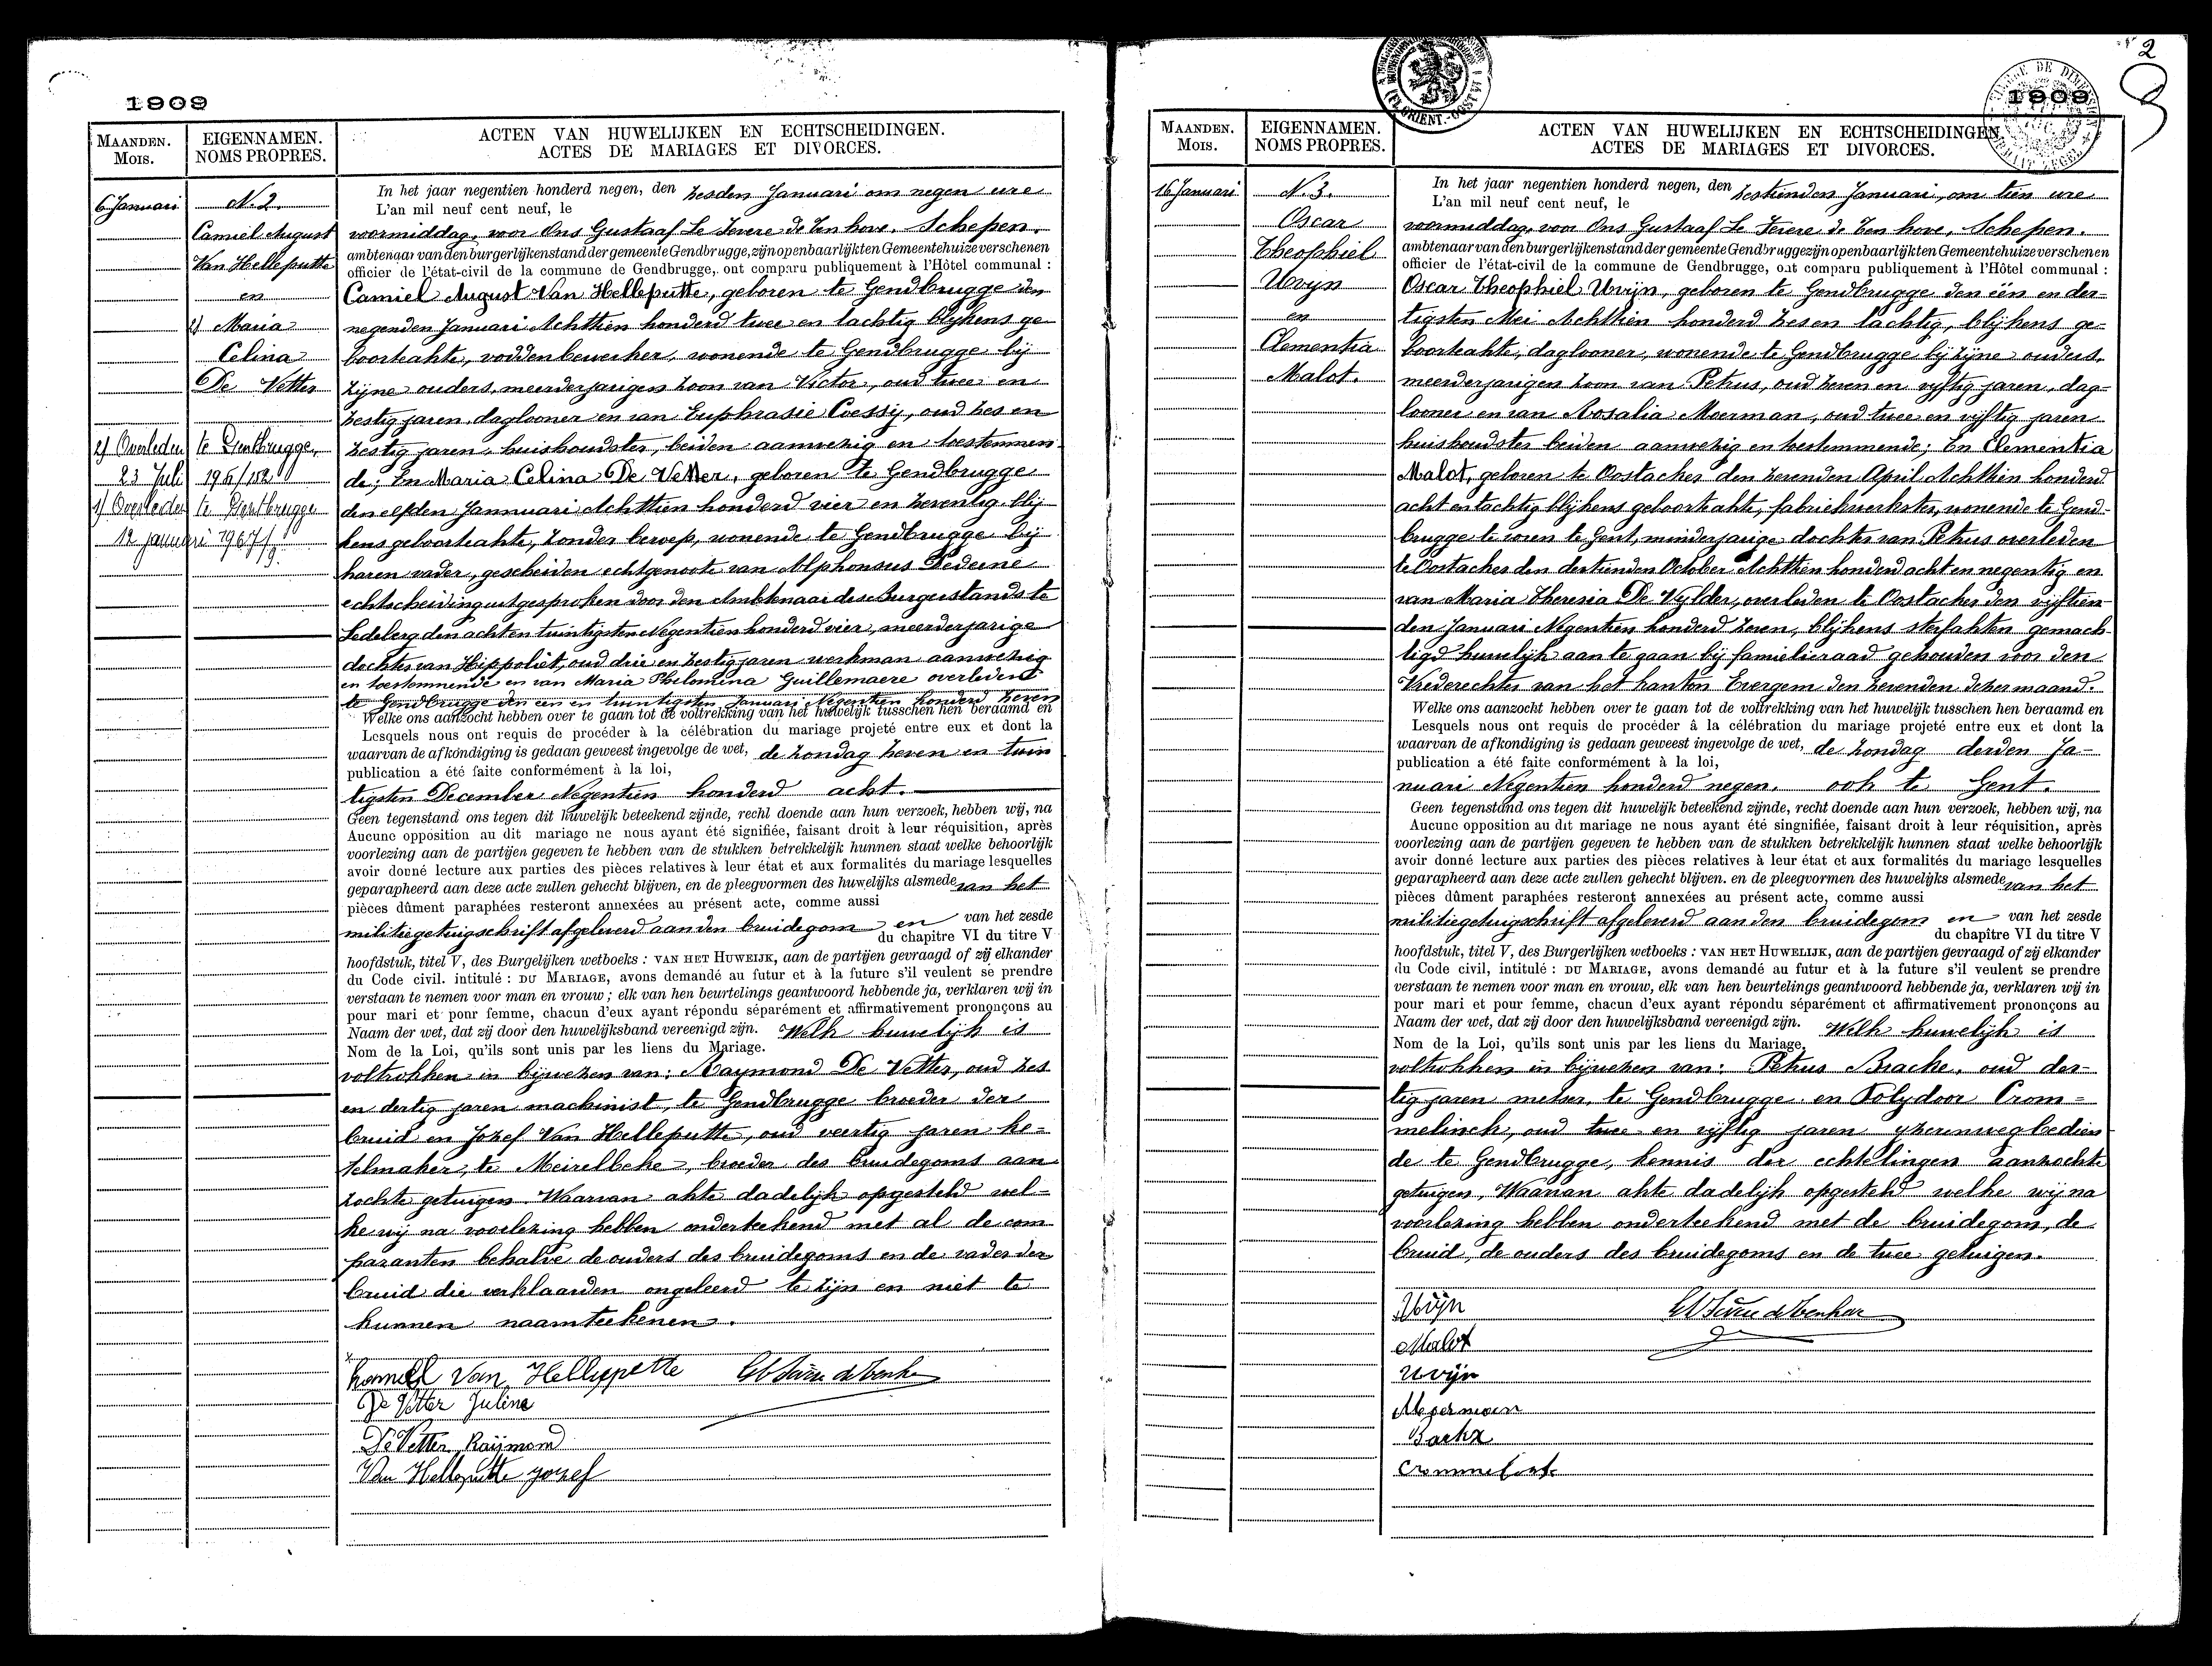 1909
MAANDEN.
Mois.
EIGENNAMEN.
NOMS PROPRES.
ACTEN VAN HUWELIJKEN EN ECHTSCHEIDINGEN.
ACTES DE MARIAGES ET DIVORCES.
6 Januari
N. 2.
Camiel August
Van Helleputte
en
2) Maria
Celina
De Vetter
2) Overleden te Gentbrugge,
23 Juli
1) Overleden te Gentbrugge
12 januari 1967/9.
In het jaar negentien honderd negen, den zesden Januari om negen ure
L'an mil neuf cent neuf, le
voormiddag, voor Ons Gustaaf Le Fevere de Ten hove, Schepen,
ambtenaar van den burgerlijken stand der gemeente Gendbrugge, zijn openbaarlijk ten Gemeentehuize verschenen
officier de l'état-civil de la commune de Gendbrugge, ont comparu publiquement à l'Hôtel communal :
Camiel August Van Helleputte, geboren te Gendbrugge den
negenden Januari Achttien honderd twee en tachtig blijkens ge-
boorteakte, voddenbewerker, wonende te Gendbrugge bij
zijne ouders, meerderjarigen zoon van Victor, oud twee en
zestig jaren, daglooner en van Euphrasie Coessij, oud zes en
zestig jaren, huishoudster, beiden aanwezig en toestemmen-
de; En Maria Celina De Vetter, geboren te Gendbrugge
den elfden Jannuari Achttien honderd vier en zeventig blij-
kens geboorteakte, zonder beroep, wonende te Gendbrugge bij
haren vader, gescheiden echtgenoote van Alphonsus Dederne
echtscheiding uitgesproken door den Ambtenaar des Burgerstands te
Ledeberg den acht en twintigsten Negentien honderd vier, meerderjarige
dochter van Hippoliet, oud drie en zestig jaren werkman aanwezig
en toestemmende en van Maria Philomina Guillemaere overleden
te Gendbrugge den een en twintigsten Januari Negentien honderd zeven
Welke ons aanzocht hebben over te gaan tot de voltrekking van het huwelijk tusschen hen beraamd en
Lesquels nous ont requis de procéder à la célébration du mariage projeté entre eux et dont la
waarvan de afkondiging is gedaan geweest ingevolge de wet, de zondag zeven en twin
publication a été faite conformément à la loi,
tigsten December Negentien honderd acht.
Geen tegenstand ons tegen dit huwelijk beteekend zijnde, recht doende aan hun verzoek, hebben wij, na
Aucune opposition au dit mariage ne nous ayant été signifiée, faisant droit à leur réquisition, après
voorlezing aan de partijen gegeven te hebben van de stukken betrekkelijk hunnen staat welke behoorlijk
avoir donné lecture aux parties des pièces relatives à leur état et aux formalités du mariage lesquelles
geparapheerd aan deze acte zullen gehecht blijven, en de pleegvormen des huwelijks alsmede van het
pièces dûment paraphées resteront annexées au présent acte, comme aussi
militiegetuigschrift afgeleverd aan den bruidegom en van het zesde
du chapitre VI du titre V
hoofdstuk, titel V, des Burgelijken wetboeks : VAN HET HUWEIJK, aan de partijen gevraagd of zij elkander
du Code civil. intitulé : DU MARIAGE, avons demandé au futur et à la future s'il veulent se prendre
verstaan te nemen voor man en vrouw ; elk van hen beurtelings geantwoord hebbende ja, verklaren wij in
pour mari et pour femme, chacun d'eux ayant répondu séparément et affirmativement prononçons au
Naam der wet, dat zij door den huwelijksband vereenigd zijn. Welk huwelijk is
Nom de la Loi, qu'ils sont unis par les liens du Mariage.
voltrokken in bijwezen van: Raymond De Vetter, oud zes
en dertig jaren machinist, te Gendbrugge broeder der
bruid en Jozef Van Helleputte, oud veertig jaren ke-
telmaker, te Meirelbeke, broeder des bruidegoms aan-
zochte getuigen. Waarvan akte dadelijk opgesteld wel-
ke wij na voorlezing hebben onderteekend met al de com-
paranten behalve de ouders des bruidegoms en de vader der
bruid die verklaarden ongeleerd te zijn en niet te
kunnen naamteekenen.
Van Helleputte
De Vetter Juline
De Vetter Raijmond
Van Helleputte jozef
2
1909
MAANDEN.
Mois.
EIGENNAMEN.
NOMS PROPRES.
ACTEN VAN HUWELIJKEN EN ECHTSCHEIDINGEN.
ACTES DE MARIAGES ET DIVORCES.
16 Januari
N. 3.
Oscar
Theophiel
Uvijn
en
Clementia
Malot.
In het jaar negentien honderd negen, den zestienden Januari, om tien ure
L'an mil neuf cent neuf, le
voormiddag, voor Ons Gustaaf Le Fevere de Ten hove, Schepen.
ambtenaar van den burgerlijken stand der gemeente Gendbrugge zijn openbaarlijk ten Gemeentehuize verschenen
officier de l'état-civil de la commune de Gendbrugge, ont comparu publiquement à l'Hôtel communal :
Oscar Theophiel Uvijn, geboren te Gendbrugge den één en der-
tigsten Mei Achttien honderd zes en tachtig, blijkens ge-
boorteakte, daglooner, wonende te Gendbrugge bij zijne ouders,
meerderjarigen zoon van Petrus, oud zeven en vijftig jaren, dag-
looner en van Rosalia Moerman, oud twee en vijftig jaren
huishoudster beiden aanwezig en toestemmende; En Clementia
Malot, geboren te Oostacker den zevenden April Achttien honderd
acht en tachtig blijkens geboorteakte, fabriekwerkster, wonende te Gend-
brugge te voren te Gent, minderjarige dochter van Petrus overleden
te Oostacker den dertienden October Achttien honderd acht en negentig en
van Maria Theresia De Vylder, overleden te Oostacker den vijftien-
den Januari Negentien honderd zeven, blijkens sterfakten gemach-
tigd huwelijk aan te gaan bij famielieraad gehouden voor den
Vrederechter van het kanton Evergem den zevenden dezer maand.
Welke ons aanzocht hebben over te gaan tot de voltrekking van het huwelijk tusschen hen beraamd en
Lesquels nous ont requis de procéder à la célébration du mariage projeté entre eux et dont la
waarvan de afkondiging is gedaan geweest ingevolge de wet, de zondag derden Ja-
publication a été faite conformément à la loi,
nuari Negentien honderd negen, ook te Gent.
Geen tegenstand ons tegen dit huwelijk beteekend zijnde, recht doende aan hun verzoek, hebben wij, na
Aucune opposition au dit mariage ne nous ayant été singnifiée, faisant droit à leur réquisition, après
voorlezing aan de partijen gegeven te hebben van de stukken betrekkelijk hunnen staat welke behoorlijk
avoir donné lecture aux parties des pièces relatives à leur état et aux formalités du mariage lesquelles
geparapheerd aan deze acte zullen gehecht blijven. en de pleegvormen des huwelijks alsmede van het
pièces dûment paraphées resteront annexées au présent acte, comme aussi
militiegetuigschrift afgeleverd aan den bruidegom en van het zesde
du chapître VI du titre V
hoofdstuk, titel V, des Burgerlijken wetboeks : VAN HET HUWELIJK, aan de partijen gevraagd of zij elkander
du Code civil, intitulé : DU MARIAGE, avons demandé au futur et à la future s'il veulent se prendre
verstaan te nemen voor man en vrouw, elk van hen beurtelings geantwoord hebbende ja, verklaren wij in
pour mari et pour femme, chacun d'eux ayant répondu séparément et affirmativement prononçons au
Naam der wet, dat zij door den huwelijksband vereenigd zijn. Welk huwelijk is
Nom de la Loi, qu'ils sont unis par les liens du Mariage.
voltrokken in bijwezen van: Petrus Bracke, oud der-
tig jaren metser, te Gendbrugge en Polydoor Crom-
melinck, oud twee en vijftig jaren yzerenwegbedien-
de te Gendbrugge, kennis der echtelingen aanzochte
getuigen, Waarvan akte dadelijk opgesteld welke wij na
voorlezing hebben onderteekend met de bruidegom, de
bruid, de ouders des bruidegoms en de twee getuigen.
Uvijn
Malot
Uvijn